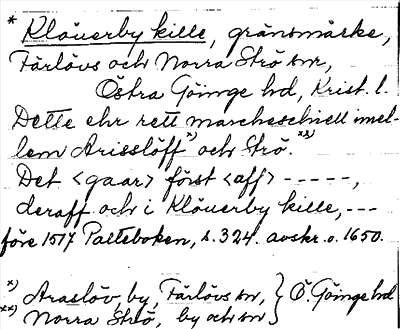 * Klöuerby kille, gränsmärke,
Färlövs och Norra Strö snr,
Östra Göinge hd, Krist. l.
Dette ehr rett marcheschiell imel-
lem Arisslöff *) och Strö. **)
Det <gaar> först <aff> -----,
deraff och i Klöuerby kille, ---
före 1517 Palteboken, s. 324. avskr. o. 1650.
*) Araslöv, by, Färlövs sn, } Ö. Göinge hd
**) Norra Strö, by och sn